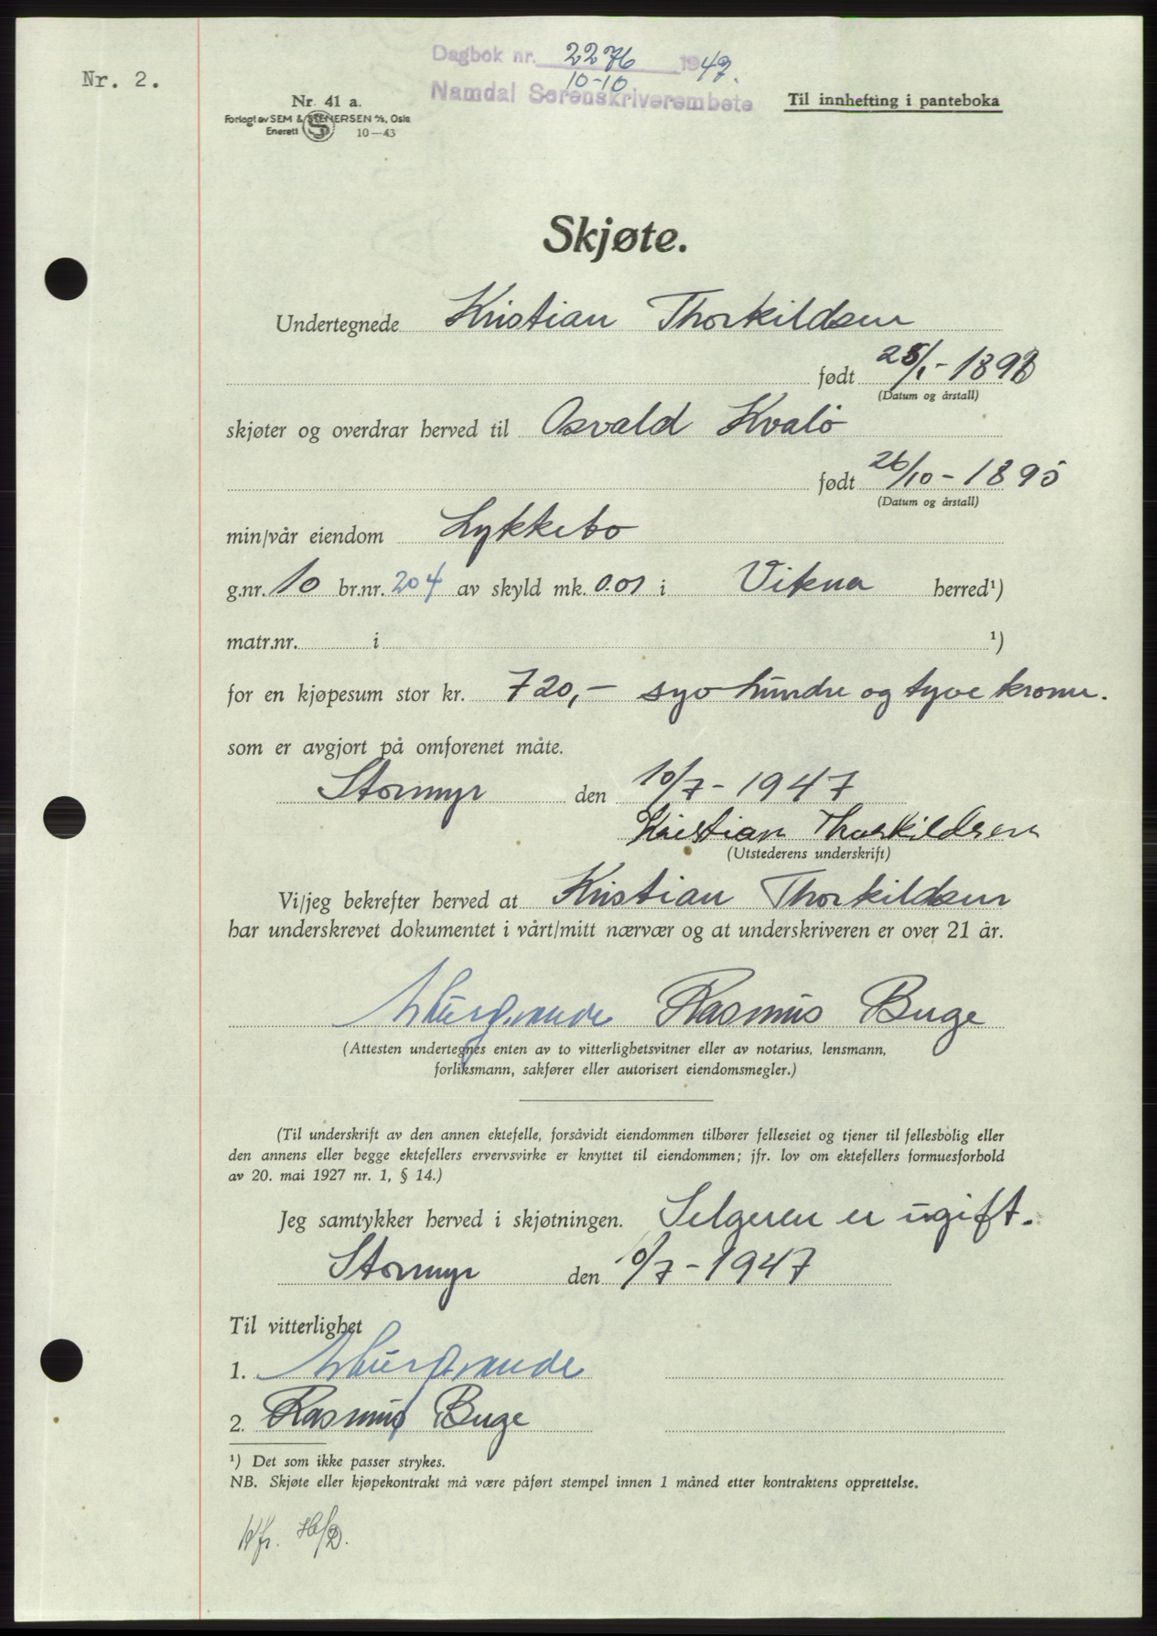 Nr. 2.
Dagbok nr. 2276 1947.
10-10
Namdal Sorenskriverembete
Nr. 41 a.
Til innhefting i panteboka
Forlagt av SEM & STENERSEN A/S, Oslo
Enerett 10—43
Skjøte.
Undertegnede Kristian Thorkildsen
født 25/1-189
(Datum og årstall)
skjøter og overdrar herved til Osvald Kvalö
født 26/10-1895
(Datum og årstall)
min/vår eiendom Lykkebo
g.nr. 10 br.nr. 204 av skyld mk. 0.01 i Vikna herred¹)
matr.nr. i ¹)
for en kjøpesum stor kr. 720,- syv hundre og tyve kroner.
som er avgjort på omforenet måte.
Stormyr den 10/7-1947
Kristian Thorkildsen
(Utstederens underskrift)
Vi/jeg bekrefter herved at Kristian Thorkildsen
har underskrevet dokumentet i vårt/mitt nærvær og at underskriveren er over 21 år.
Rasmus Buge
(Attesten undertegnes enten av to vitterlighetsvitner eller av notarius, lensmann,
forliksmann, sakfører eller autorisert eiendomsmegler.)
(Til underskrift av den annen ektefelle, forsåvidt eiendommen tilhører felleseiet og tjener til fellesbolig eller
den annens eller begge ektefellers ervervsvirke er knyttet til eiendommen; jfr. lov om ektefellers formuesforhold
av 20. mai 1927 nr. 1, § 14.)
Jeg samtykker herved i skjøtningen. Selgeren er ugift.
Stormyr den 10/7-1947
Til vitterlighet
1.
2. Rasmus Buge
¹) Det som ikke passer strykes.
NB. Skjøte eller kjøpekontrakt må være påført stempel innen 1 måned etter kontraktens opprettelse.